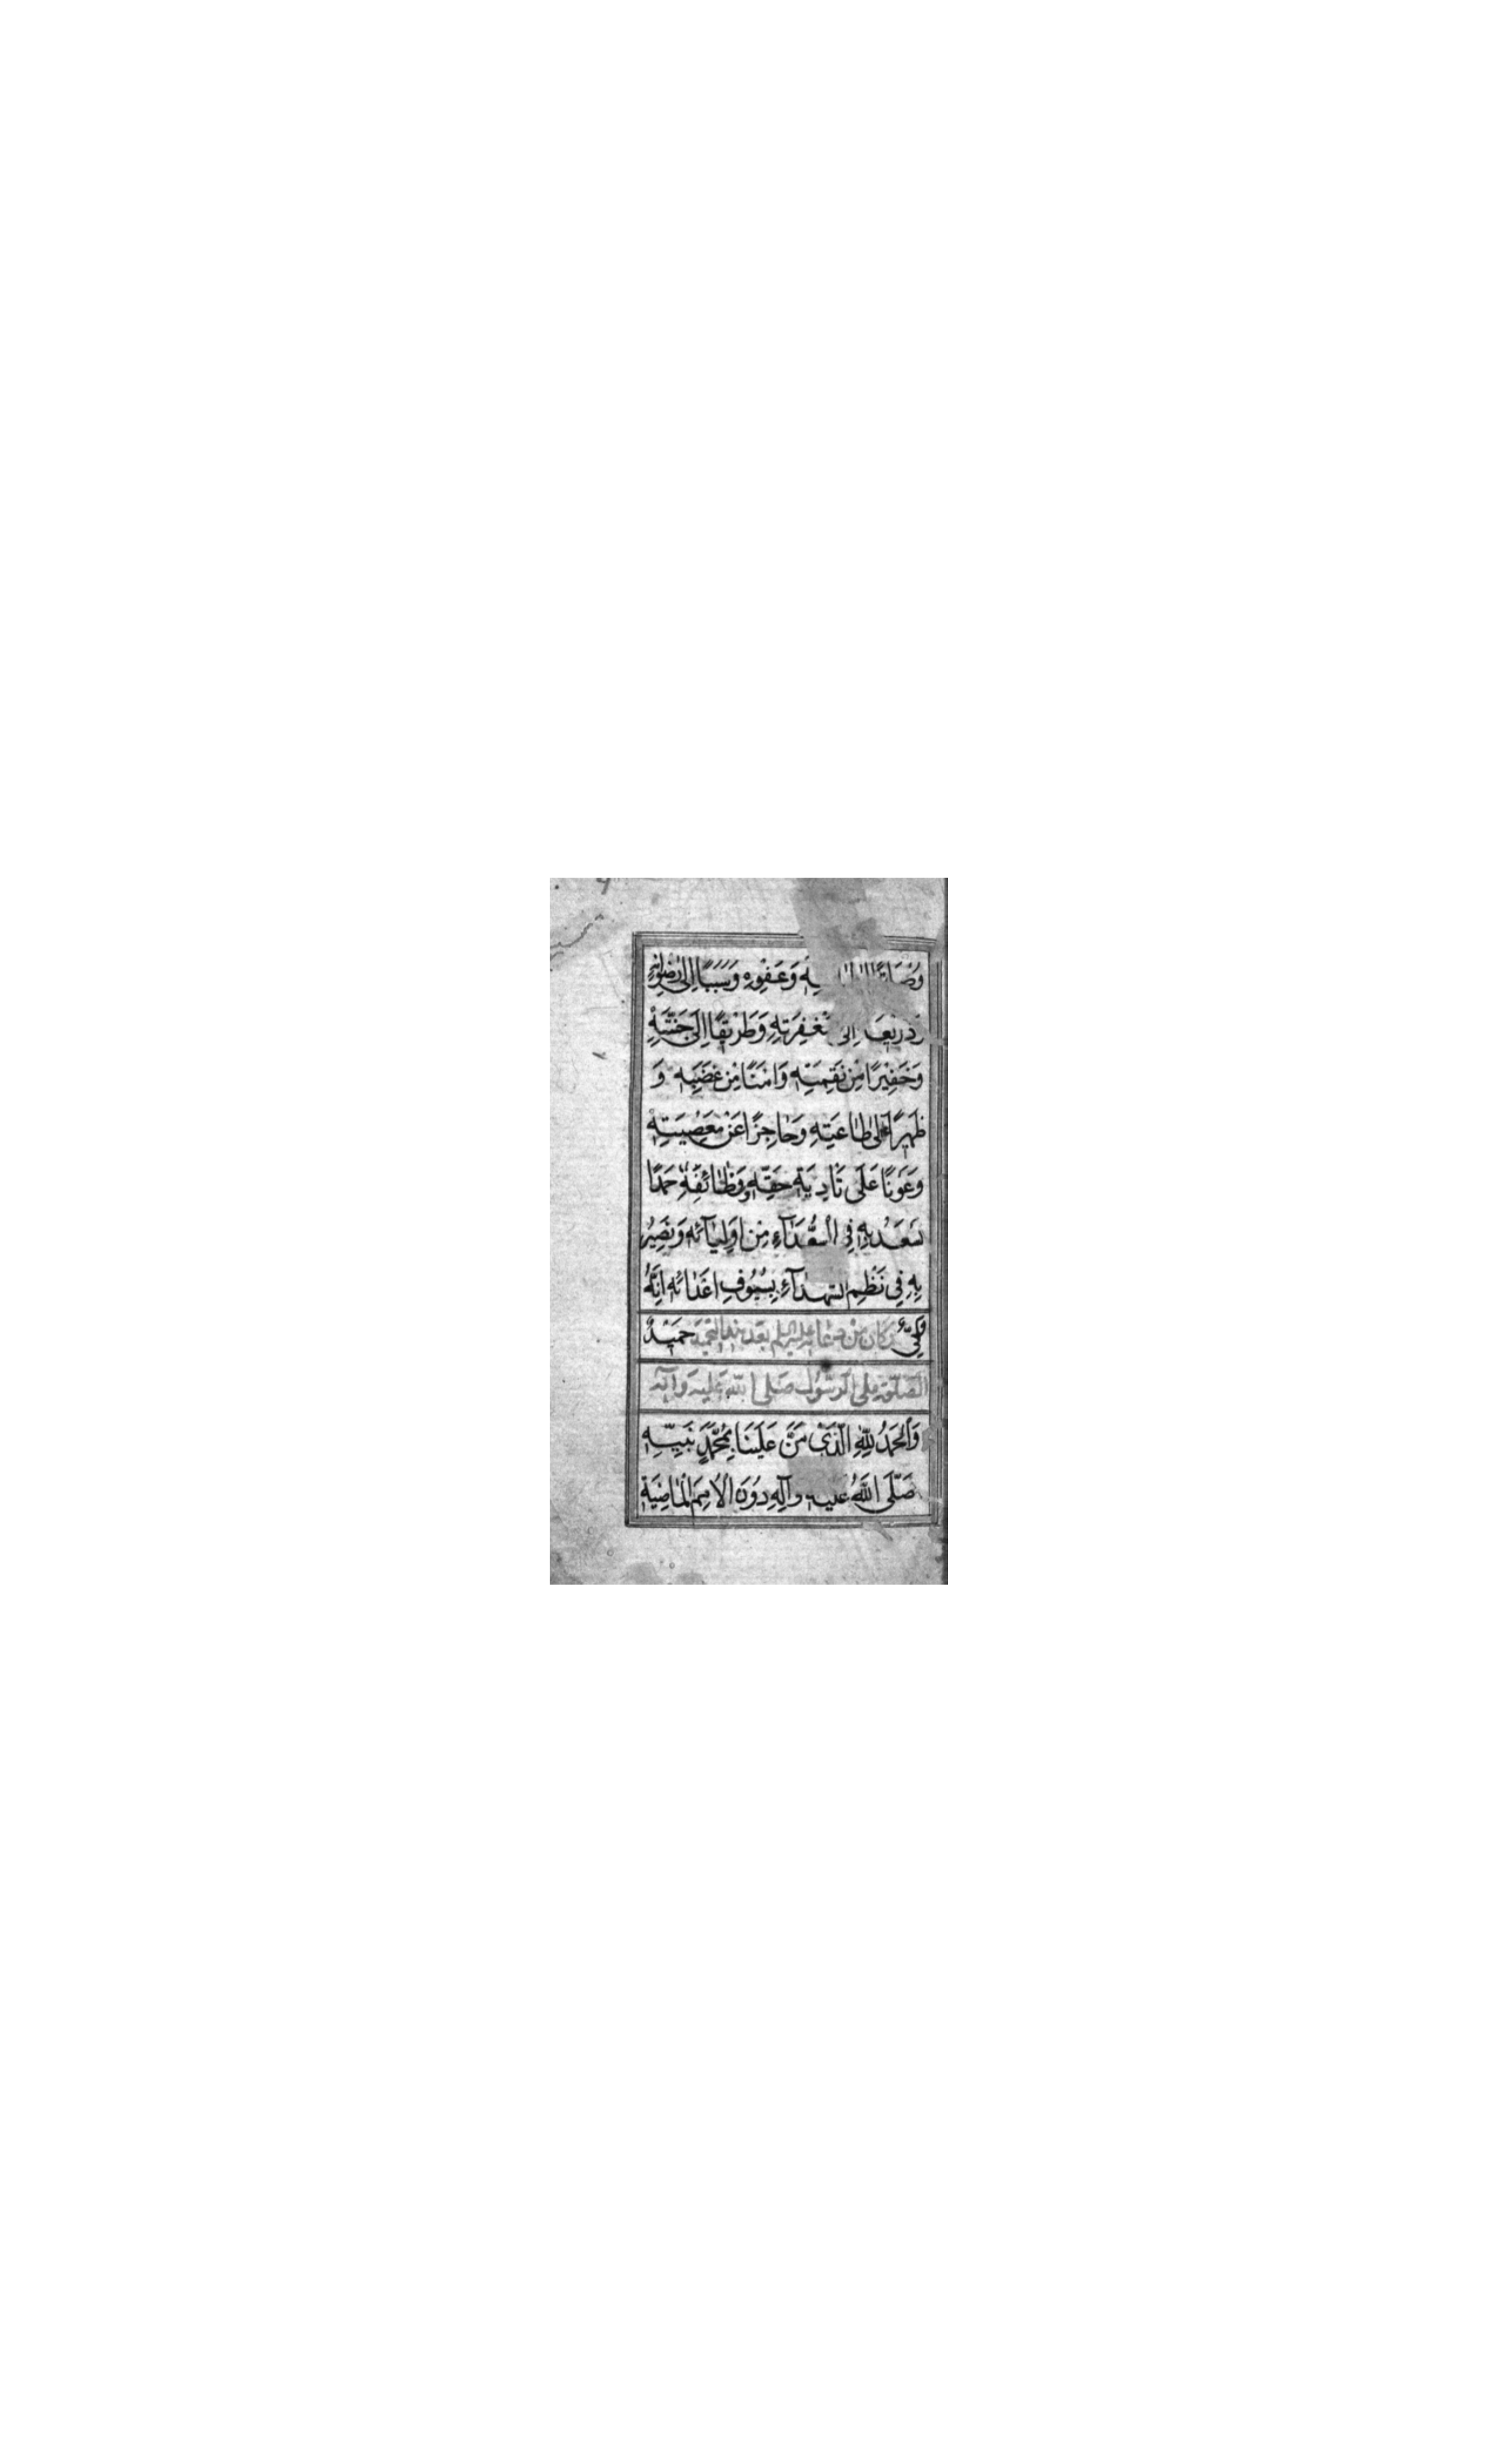 وُصْلَةً اِلٰى طَاعَتِهِ وَعَفْوِهِ وَسَبَبًا اِلٰى رِضْوَانِهِ
وَذَرِيعَةً اِلٰى مَغْفِرَتِهِ وَطَرِيقًا اِلَى جَنَّتِهِ
وَخَفِيْرًا مِنْ نَقِمَتِهِ وَاَمْنًا مِنْ غَضَبِهِ وَ
ظَهِيرًا عَلٰى طَاعَتِهِ وَحَاجِزًا عَنْ مَعْصِيَتِهِ
وَعَوْنًا عَلَى تَأدِيَةِ حَقِّهِ وَوَظَائِفِهِ حَمْدًا
نَسْعَدُ بِهِ فِي السُّعَدَآءِ مِنْ اَوْلِيَآئِهِ وَنَصِيْرُ
بِهِ فِي نَظْمِ الشُّهَدَآءِ بِسُيُوفِ اَعْدَائِهِ اِنَّهُ
وَلِيٌّ وكان من دعائه عليه السلم بعد هذا التحميد حَمِيْدٌ
الصلوة على الرسول صلى الله عليه وآله
وَالْحَمْدُ لِلّٰهِ الَّذِيْ مَنَّ عَلَيْنَا بِمُحَمَّدٍ نَبِيِّهِ
صَلَّى اللّٰهُ عَلَيْهِ وَآلِهِ دُوْنَ الْاُمَمِ الْمَاضِيَةِ